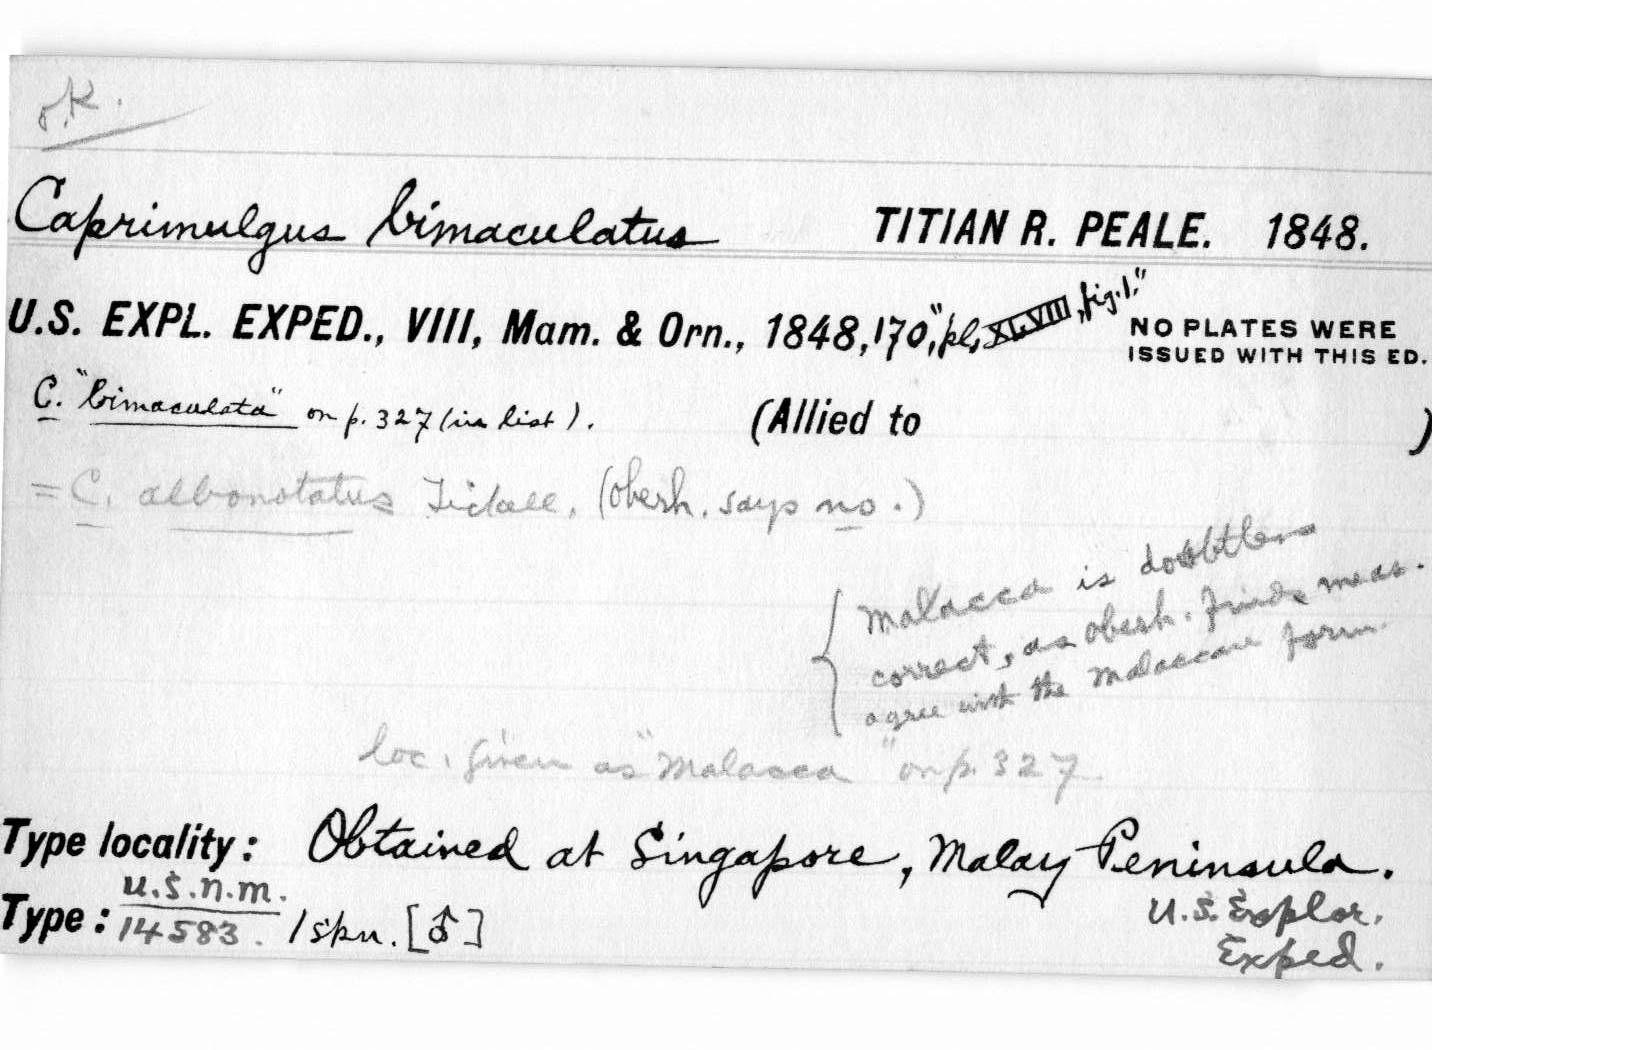 o.K.
Caprimulgus bimaculatus TITIAN R. PEALE. 1848.
U.S. EXPL. EXPED., VIII, Mam. & Orn., 1848, 170, "pl. XLVIII, fig. 1." NO PLATES WERE
ISSUED WITH THIS ED.
C. "bimaculata" on p. 327 (in list). (Allied to )
= C. albonotatus Tickell. (Oberh. says no.)
Malacca is doubtless
correct, as Oberh. finds meas.
agree with the Malaccan form.
loc. given as "Malacca" on p. 327
Type locality: Obtained at Singapore, Malay Peninsula.
U.S. Explor.
Exped.
Type: U.S.N.M.
14583. 1 skn. [♂]